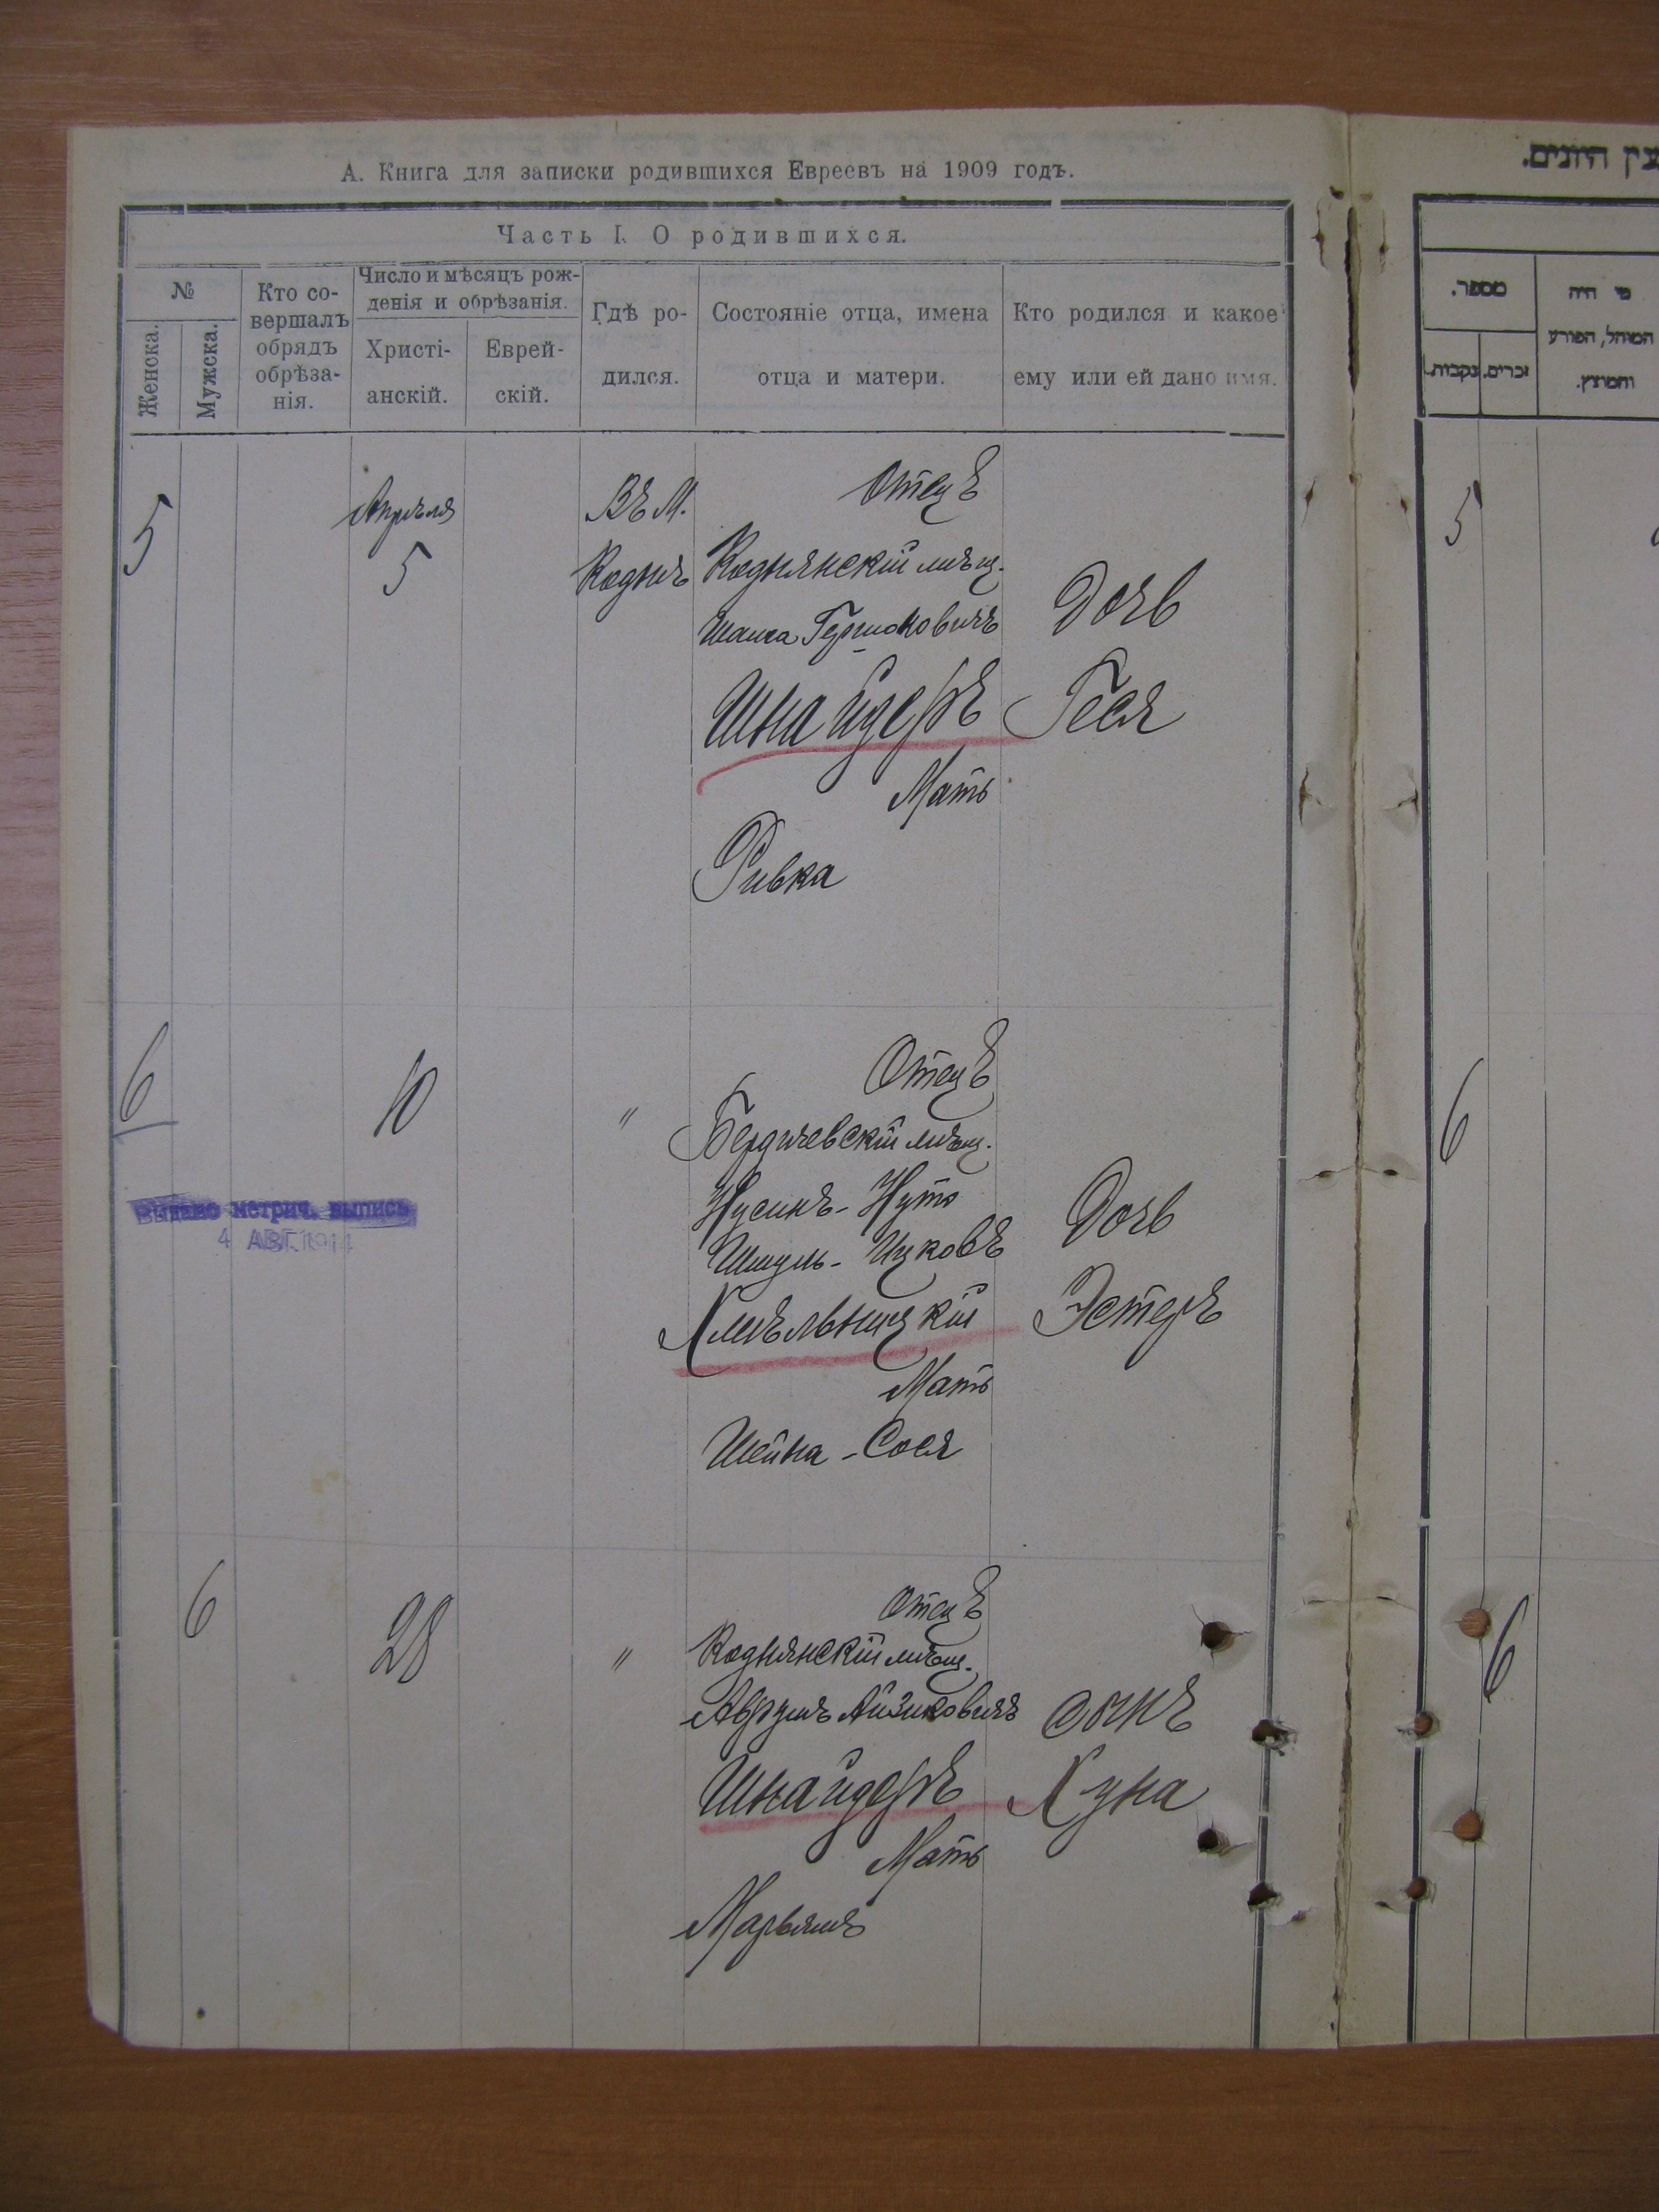 А. Книга для записки родившихся Евреевъ на 1909 годъ.
Часть I. О родившихся.
№
Женска.
Мужска.
Кто со-
вершалъ
обрядъ
обрѣза-
нія.
Число и мѣсяцъ рож-
денія и обрѣзанія.
Христі-
анскій.
Еврей-
скій.
Гдѣ ро-
дился.
Состояніе отца, имена
отца и матери.
Кто родился и какое
ему или ей дано имя.
5
Апрѣля
5
Въ М.
Коднѣ
Отецъ
Коднянскій мѣщ.
Шнайдеръ
Мать
Ривка
Дочь
Геся
6
10
"
Отецъ
Бердичевскій мѣщ.
Нусинъ-Нута
Шмуль-Ицковъ
Хмѣльницкій
Мать
Шейна-Сося
Дочь
Эстеръ
Выдано метрич. выпись
4 АВГ. 1914
6
28
"
Отецъ
Коднянскій мѣщ.
Аврумъ Айзиковичъ
Шнайдеръ
Мать
Марьямъ
сынъ
Хуна
מספר.
נקבות.
זכרים.
מי היה
המוהל, הפורע
והמוצץ.
5
6
6